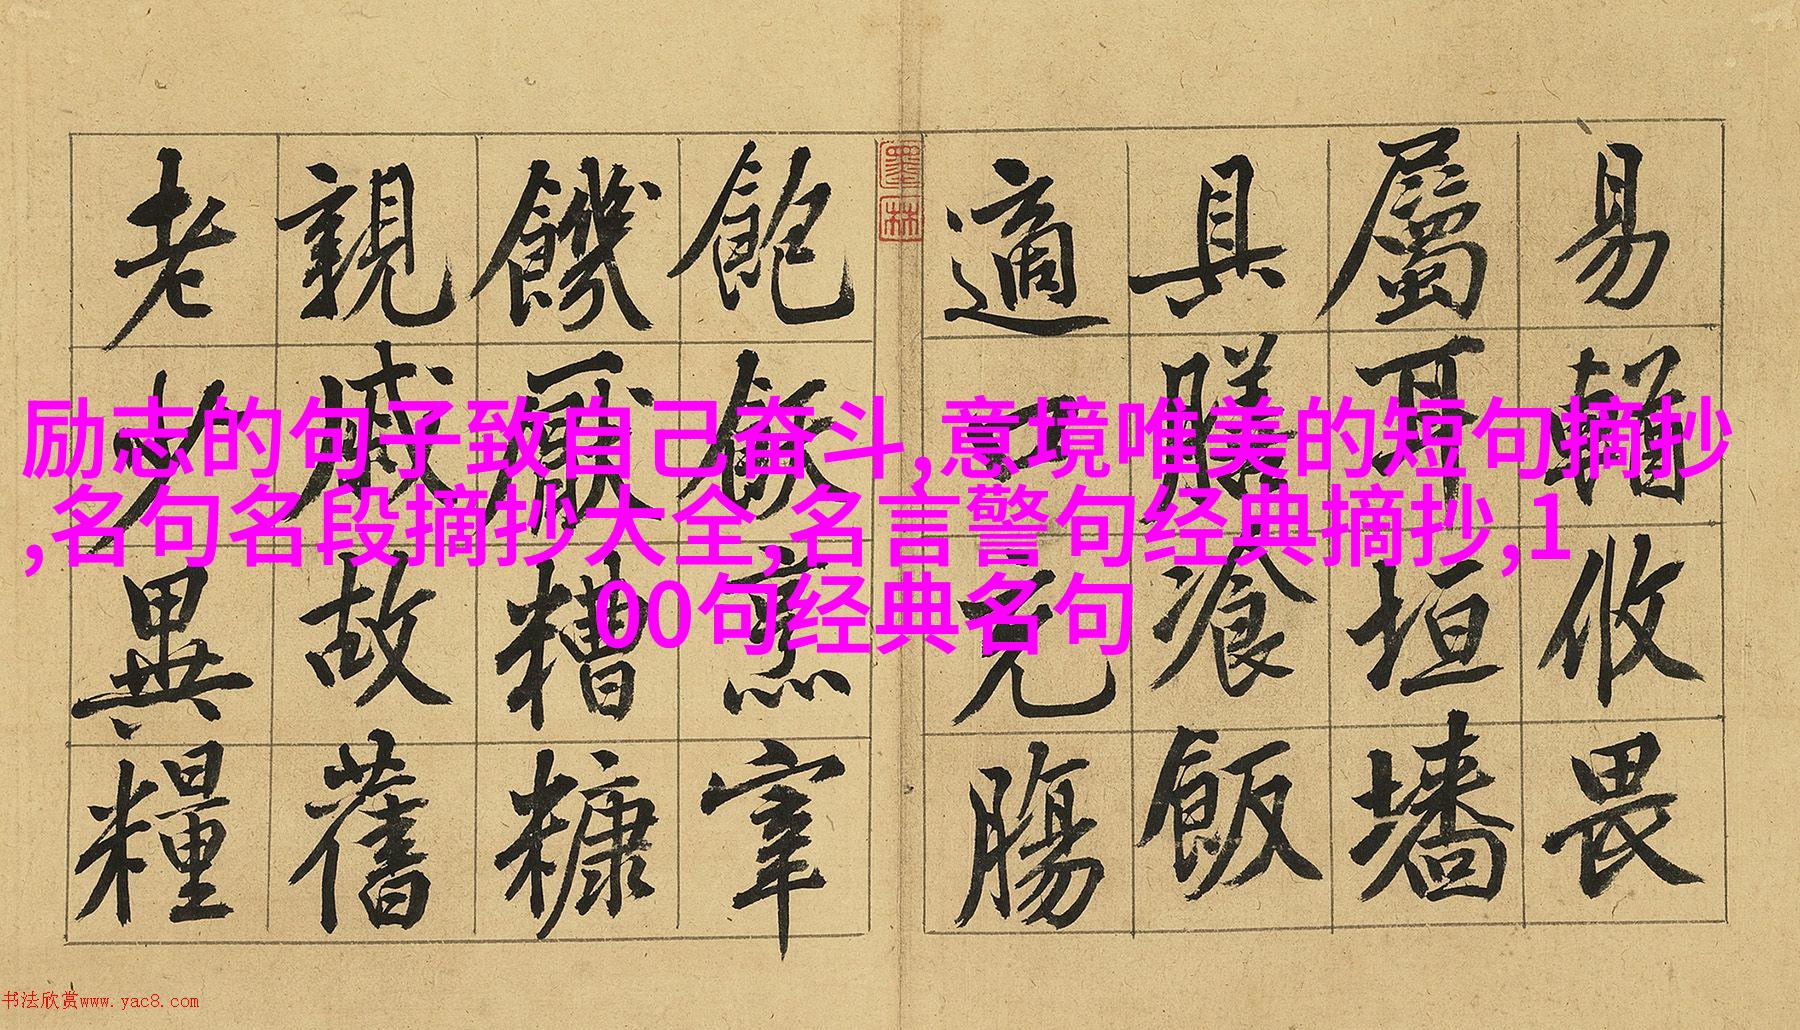 易輶攸畏
屬耳垣墻
具膳飡飯
適口充腸
墨林
飽飫烹宰
饑厭糟糠
親戚故舊
老少異糧
励志的句子致自己奋斗,意境唯美的短句摘抄
,名句名段摘抄大全,名言警句经典摘抄,1
00句经典名句
书法欣赏www.yac8.com